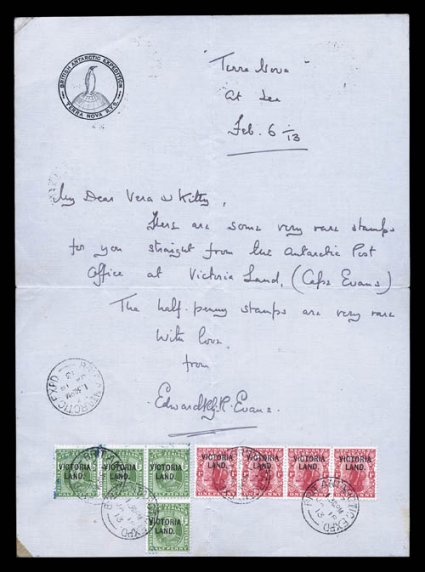 BRITISH ANTARCTIC EXPEDITION
TERRA NOVA R.Y.S.
"Terra Nova"
At Sea
Feb. 6 /13
My Dear Vera & Kitty,
Here are some very rare stamps
for you straight from the Antarctic Post
Office at Victoria Land, (Cape Evans)
The half-penny stamps are very rare
With love
from
Edward R.G.R. Evans.
BRIT. ANTARCTIC EXPD
VICTORIA LAND. VICTORIA LAND. VICTORIA LAND. VICTORIA LAND. VICTORIA LAND. VICTORIA LAND. VICTORIA LAND.
BRIT. ANTARCTIC EXPD
VICTORIA LAND.
HALF PENNY